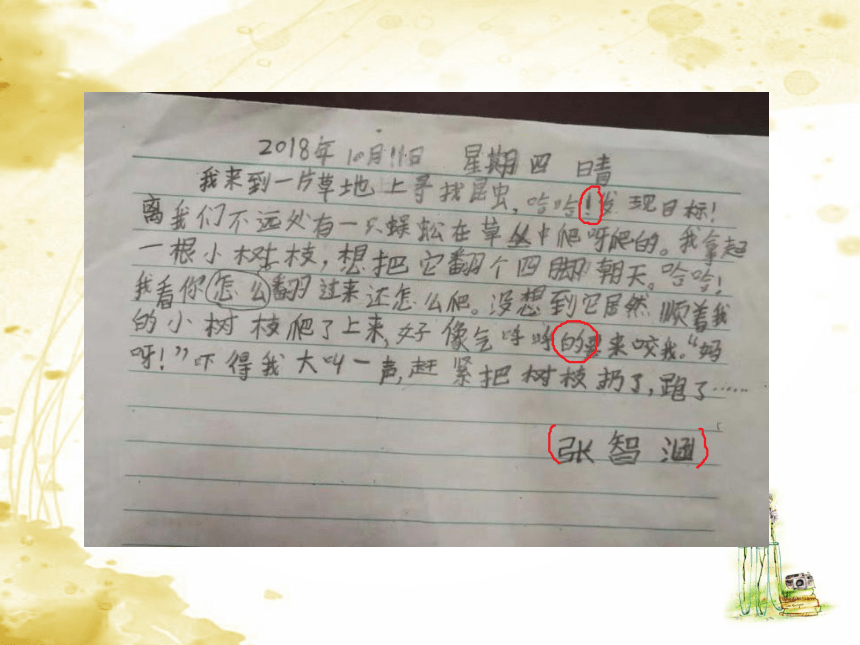 2018年 10月11日 星期四 晴
我来到一片草地上寻找昆虫,哈哈!发现目标!
离我们不远处有一只蜈蚣在草丛中爬呀爬的。我拿起
一根小树枝,想把它翻个四脚朝天。哈哈!
我看你怎么翻过来还怎么爬。没想到它居然顺着我
的小树枝爬了上来,好像气呼呼的要来咬我。“妈
呀!”吓得我大叫一声,赶紧把树枝扔了,跑了……
(张智涵)